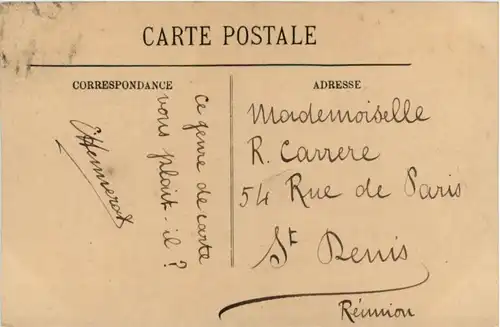 CARTE POSTALE
CORRESPONDANCE
ce genre de carte
vous plait-il ?
ADRESSE
Mademoiselle
R. Carrere
54 Rue de Paris
St Denis
Réunion